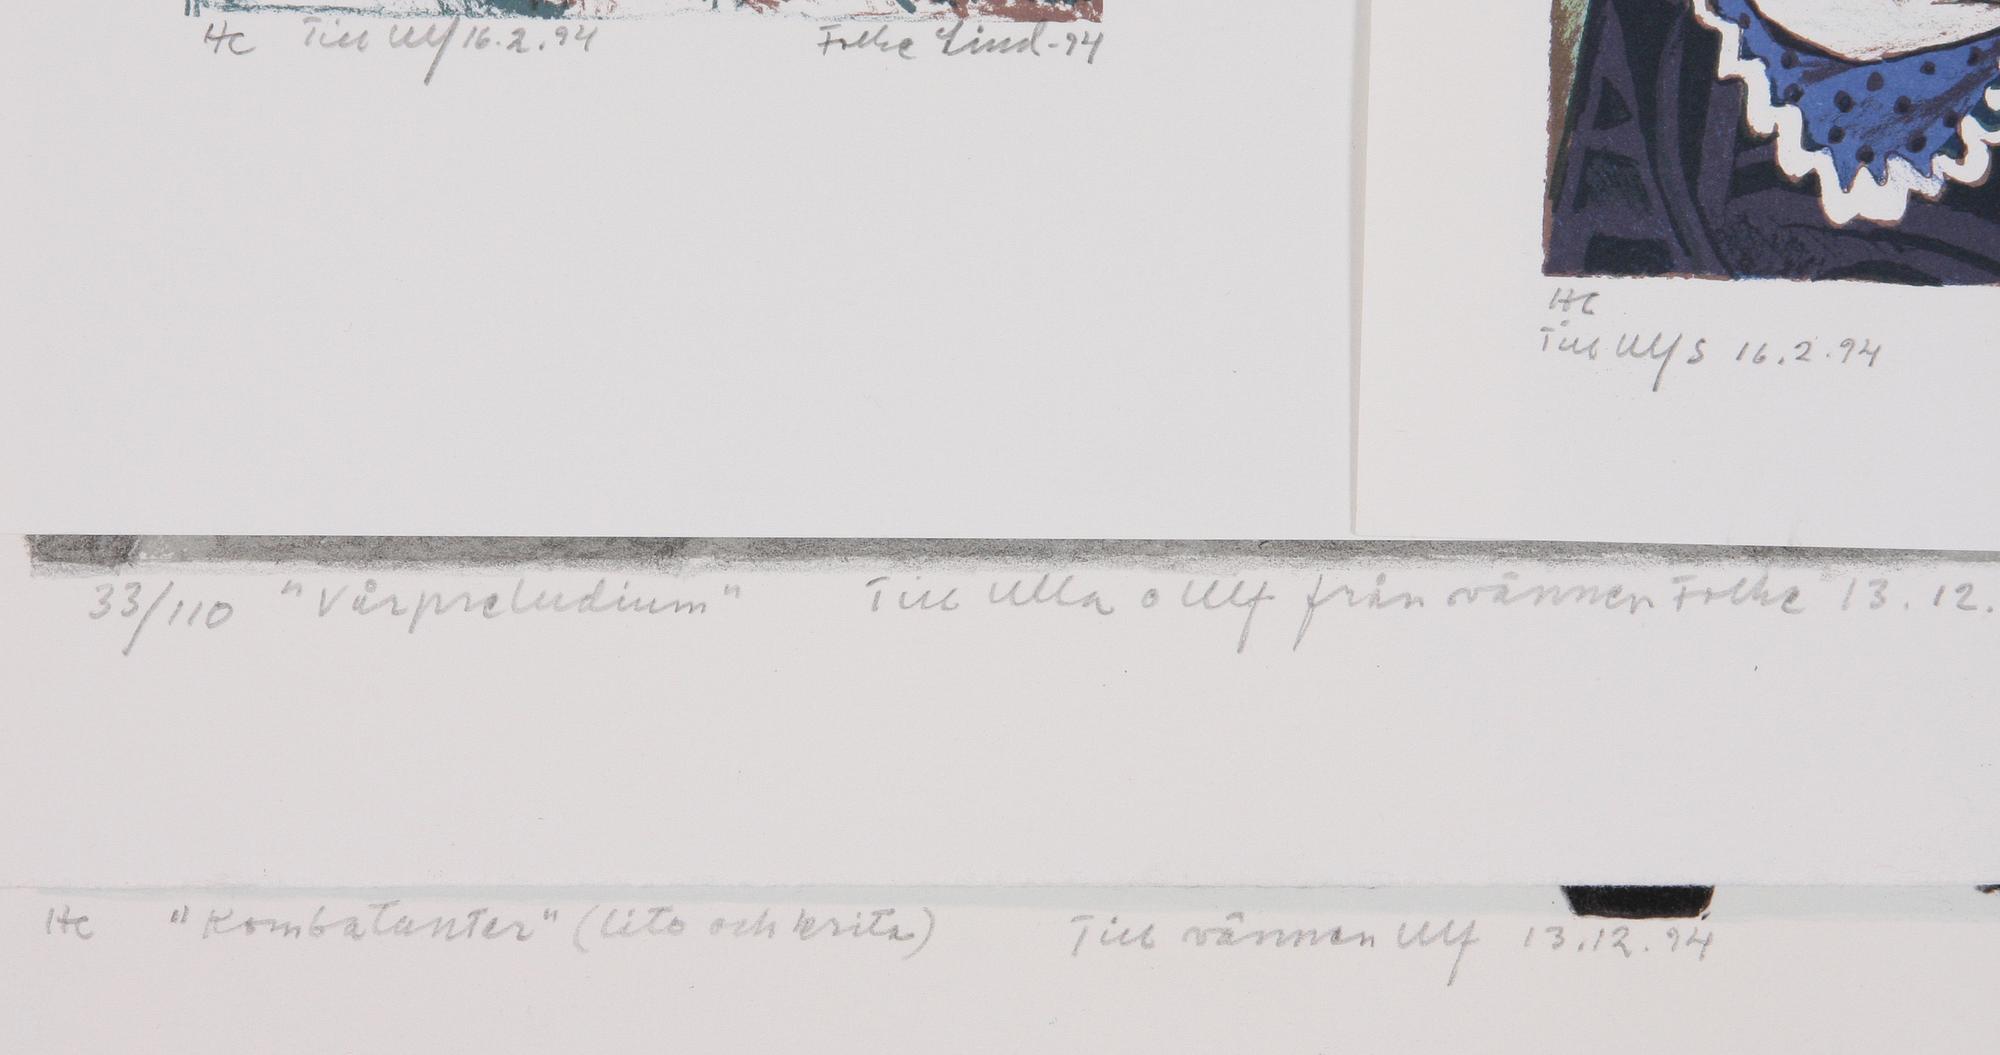 HC Till Ulf 16.2.94 Folke Lind-94
HC
Till Ulf S 16.2.94
33/110 "Vårpreludium" Till Ulla o Ulf från vännen Folke 13.12.
HC "Kombatanter" (lito och krita) Till vännen Ulf 13.12.94